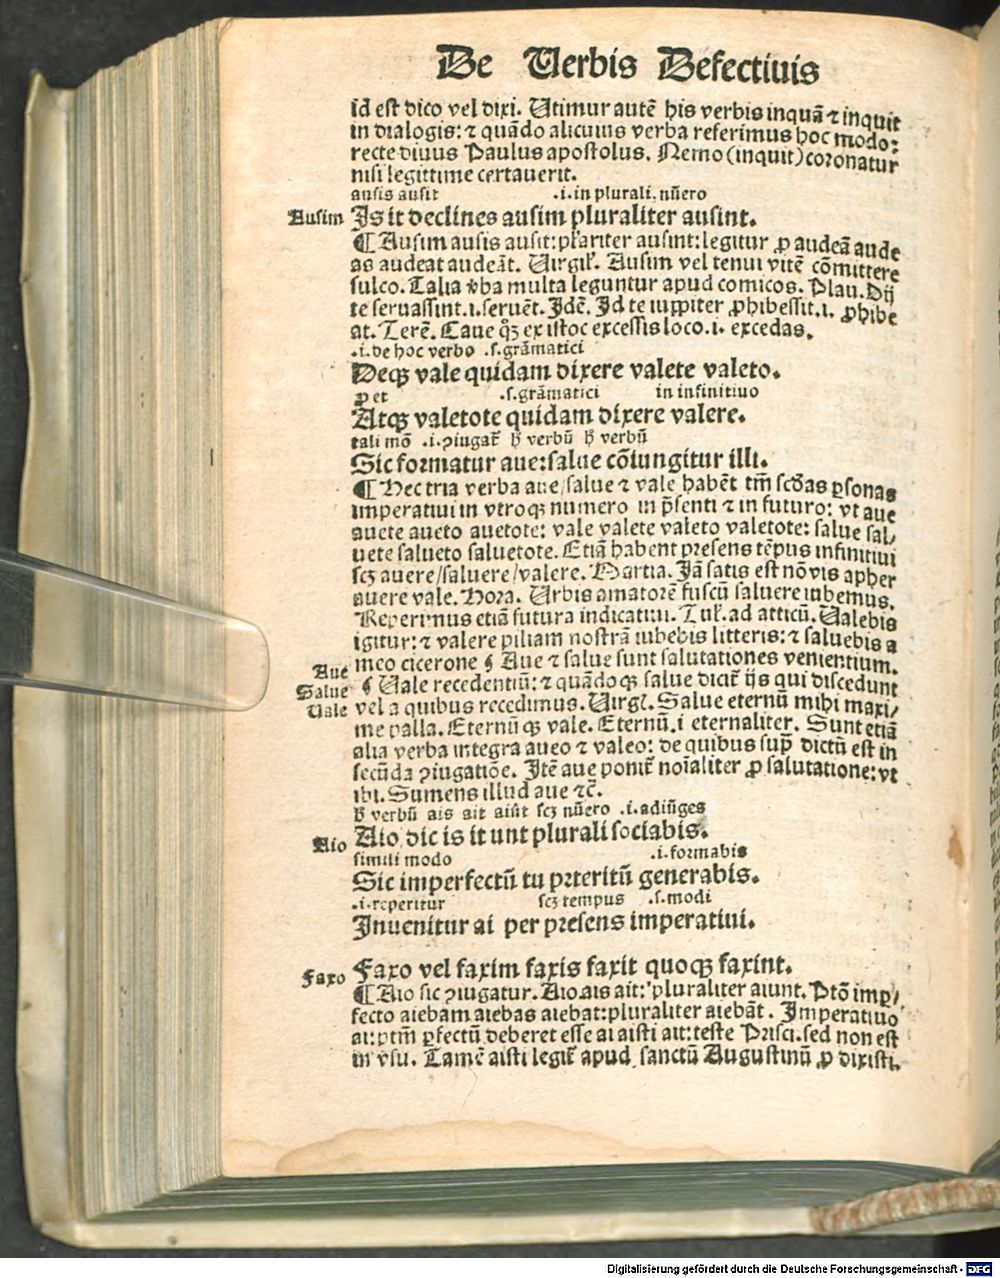 De Uerbis Defectiuis
id est dico vel dixi. Utimur autē his verbis inquā ⁊ inquit
in dialogis: ⁊ quādo alicuius verba referimus hoc modo:
recte diuus Paulus apostolus. Nemo (inquit) coronatur
nisi legittime certauerit.
ausis ausit .i. in plurali. nūero
Ausim Is it declines ausim pluraliter ausint.
¶ Ausim ausis ausit: pl̄ariter ausint: legitur ꝓ audeā aude
as audeat audeāt. Uirgil̛. Ausim vel tenui vitē cōmittere
sulco. Talia v̄ba multa leguntur apud comicos. Plau. Dij
te seruassint .i. seruēt. Idē. Id te iuꝑpiter ꝓhibessit .i. ꝓhibe
at. Terē. Caue qȝ ex istoc excessis loco .i. excedas.
.i. de hoc verbo .s. grāmatici
Deqȝ vale quidam dixere valete valeto.
ꝓ et .s. grāmatici in infinitiuo
Atqȝ valetote quidam dixere valere.
tali mō .i. ꝯiugat̄ h̄ verbū h̄ verbū
Sic formatur aue: salue cōiungitur illi.
¶ Hec tria verba aue/salue ⁊ vale habēt tm̄ scd̄as ꝑsonas
imperatiui in vtroqȝ numero in p̄senti ⁊ in futuro: vt aue
auete aueto auetote: vale valete valeto valetote: salue sal/
uete salueto saluetote. Etiā habent presens tēpus infinitiui
scȝ auere/saluere/valere. Martia. Iā satis est nō vis apher
auere vale. Hora. Urbis amatorē fuscū saluere iubemus.
Reperimus etiā futura indicatiui. Tul̛. ad atticū. Ualebis
igitur: ⁊ valere piliam nostrā iubebis litteris: ⁊ saluebis a
Aue meo cicerone ¶ Aue ⁊ salue sunt salutationes venientium.
Salue ¶ Uale recedentiū: ⁊ quādoqȝ salue dicit̄ ijs qui discedunt
Uale vel a quibus recedimus. Uirgl̛. Salue eternū mihi maxi/
me palla. Eternūqȝ vale. Eternū .i eternaliter. Sunt etiā
alia verba integra aueo ⁊ valeo: de quibus sup̄ dictū est in
secūda ꝯiugatiōe. Itē aue ponit̄ noīaliter ꝓ salutatione: vt
ibi. Sumens illud aue ⁊c̄.
h̄ verbū ais ait aiūt scȝ nūero .i. adiūges
Aio Aio dic is it unt plurali sociabis.
simili modo .i. formabis
Sic imperfectū tu preteritū generabis.
.i. reperitur scȝ tempus .s. modi
Inuenitur ai per presens imperatiui.
Faxo Faxo vel faxim faxis faxit quoqȝ faxint.
¶ Aio sic ꝯiugatur. Aio ais ait: pluraliter aiunt. Ptō imꝑ/
fecto aiebam aiebas aiebat: pluraliter aiebāt. Imperatiuo
ai: ptm̄ ꝑfectū deberet esse ai aisti ait: teste Prisci. sed non est
in vsu. Tamē aisti legit̄ apud sanctū Augustinū ꝓ dixisti.
Digitalisierung gefördert durch die Deutsche Forschungsgemeinschaft - DFG